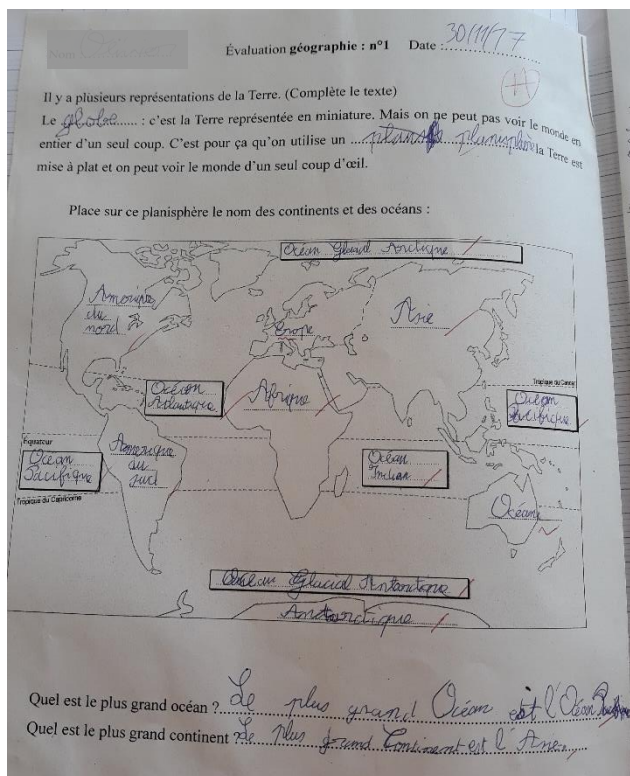 Évaluation géographie : n°1 Date : 30/11/17
Il y a plusieurs représentations de la Terre. (Complète le texte)
Le globe : c'est la Terre représentée en miniature. Mais on ne peut pas voir le monde en
entier d'un seul coup. C'est pour ça qu'on utilise un planisphère la Terre est
mise à plat et on peut voir le monde d'un seul coup d'œil.
Place sur ce planisphère le nom des continents et des océans :
Océan Glacial Arctique
Amérique
du
nord
Europe
Asie
Tropique du Cancer
Océan
Atlantique
Afrique
Océan
Pacifique
Équateur
Océan
Pacifique
Amérique
du
sud
Océan
Indian
Tropique du Capricorne
Océani
Océan Glacial Antarctique
Antarctique
Quel est le plus grand océan ? Le plus grand Océan est l'Océan
Quel est le plus grand continent ? Le plus grand Continent est l'Asie.